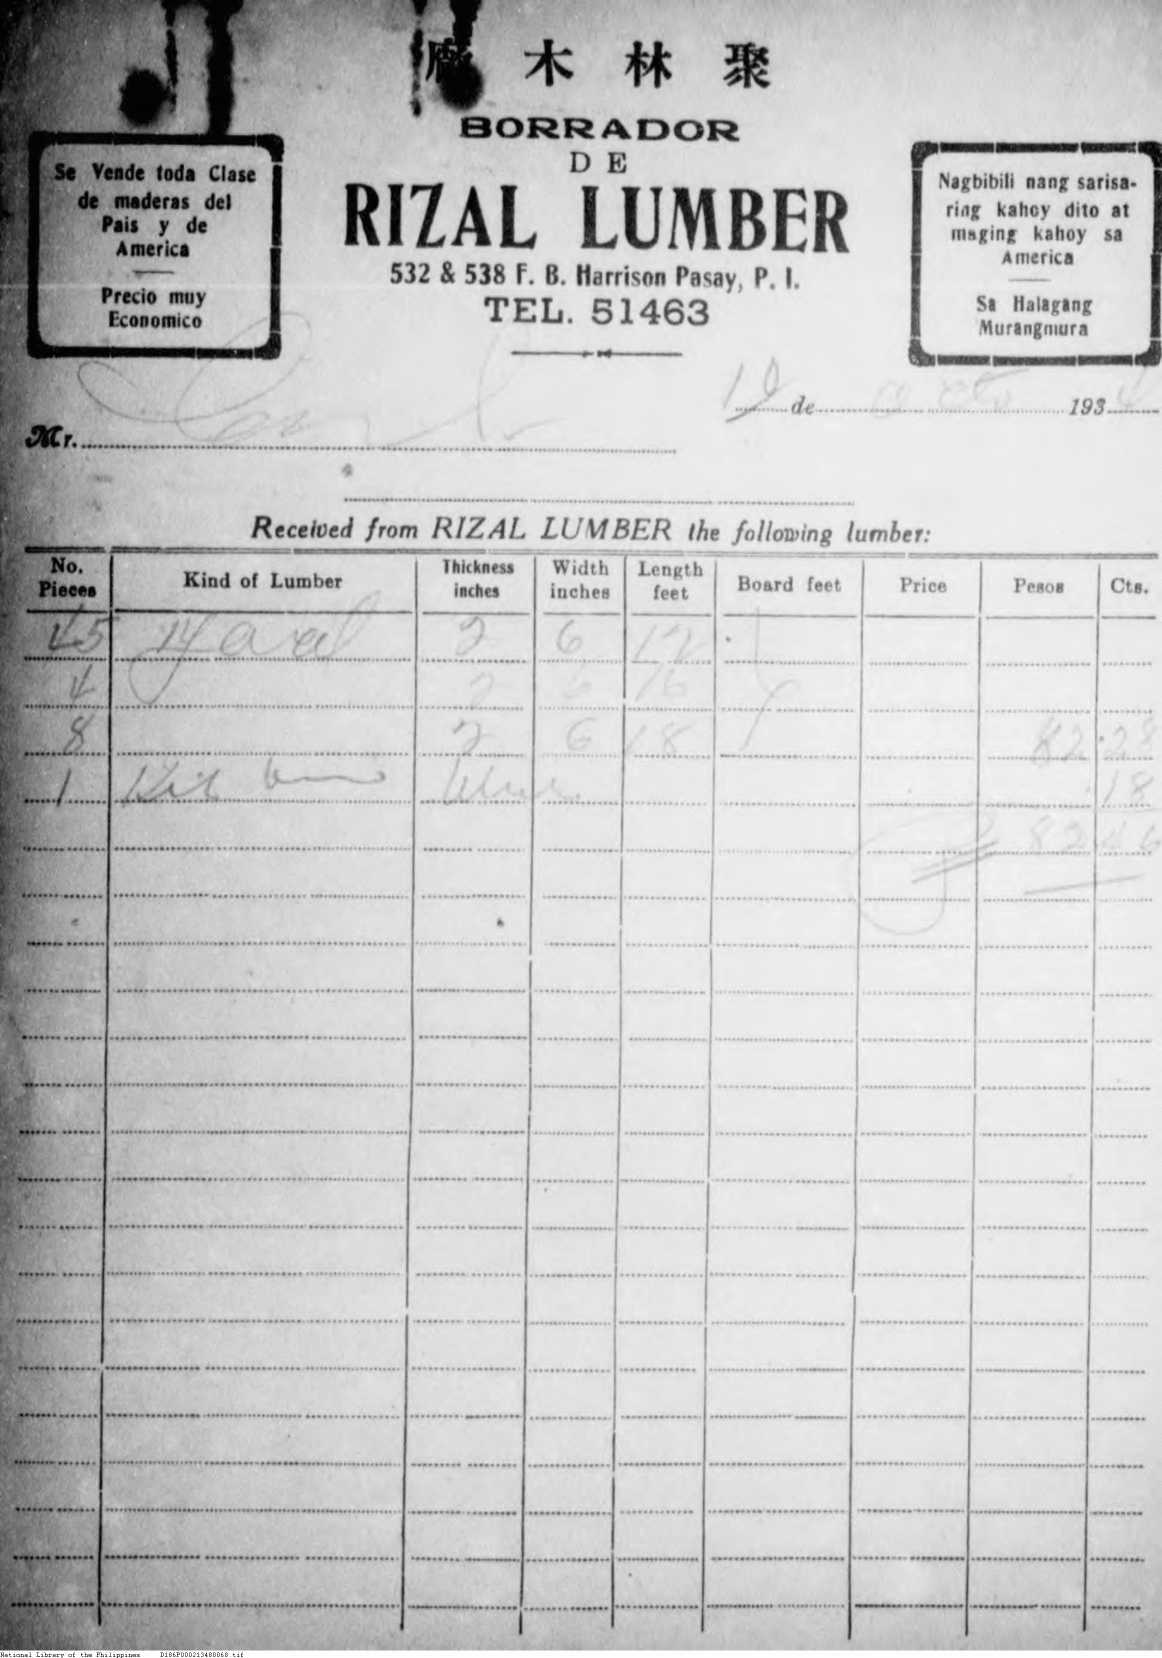 聚林木廠
BORRADOR
DE
RIZAL LUMBER
532 & 538 F. B. Harrison Pasay, P. I.
TEL. 51463
Se Vende toda Clase
de maderas del
Pais y de
America
Precio muy
Economico
Nagbibili nang sarisa-
ring kahoy dito at
maging kahoy sa
America
Sa Halagang
Murangmura
19 de 193
Mr.
Received from RIZAL LUMBER the following lumber:
No. Pieces Kind of Lumber Thickness inches Width inches Length feet Board feet Price Pesos Cts.
45 2 6 12
4 2 6 16
8 2 6 18 82.28
1 18
82 46
National Library of the Philippines D186P000213480068.tif